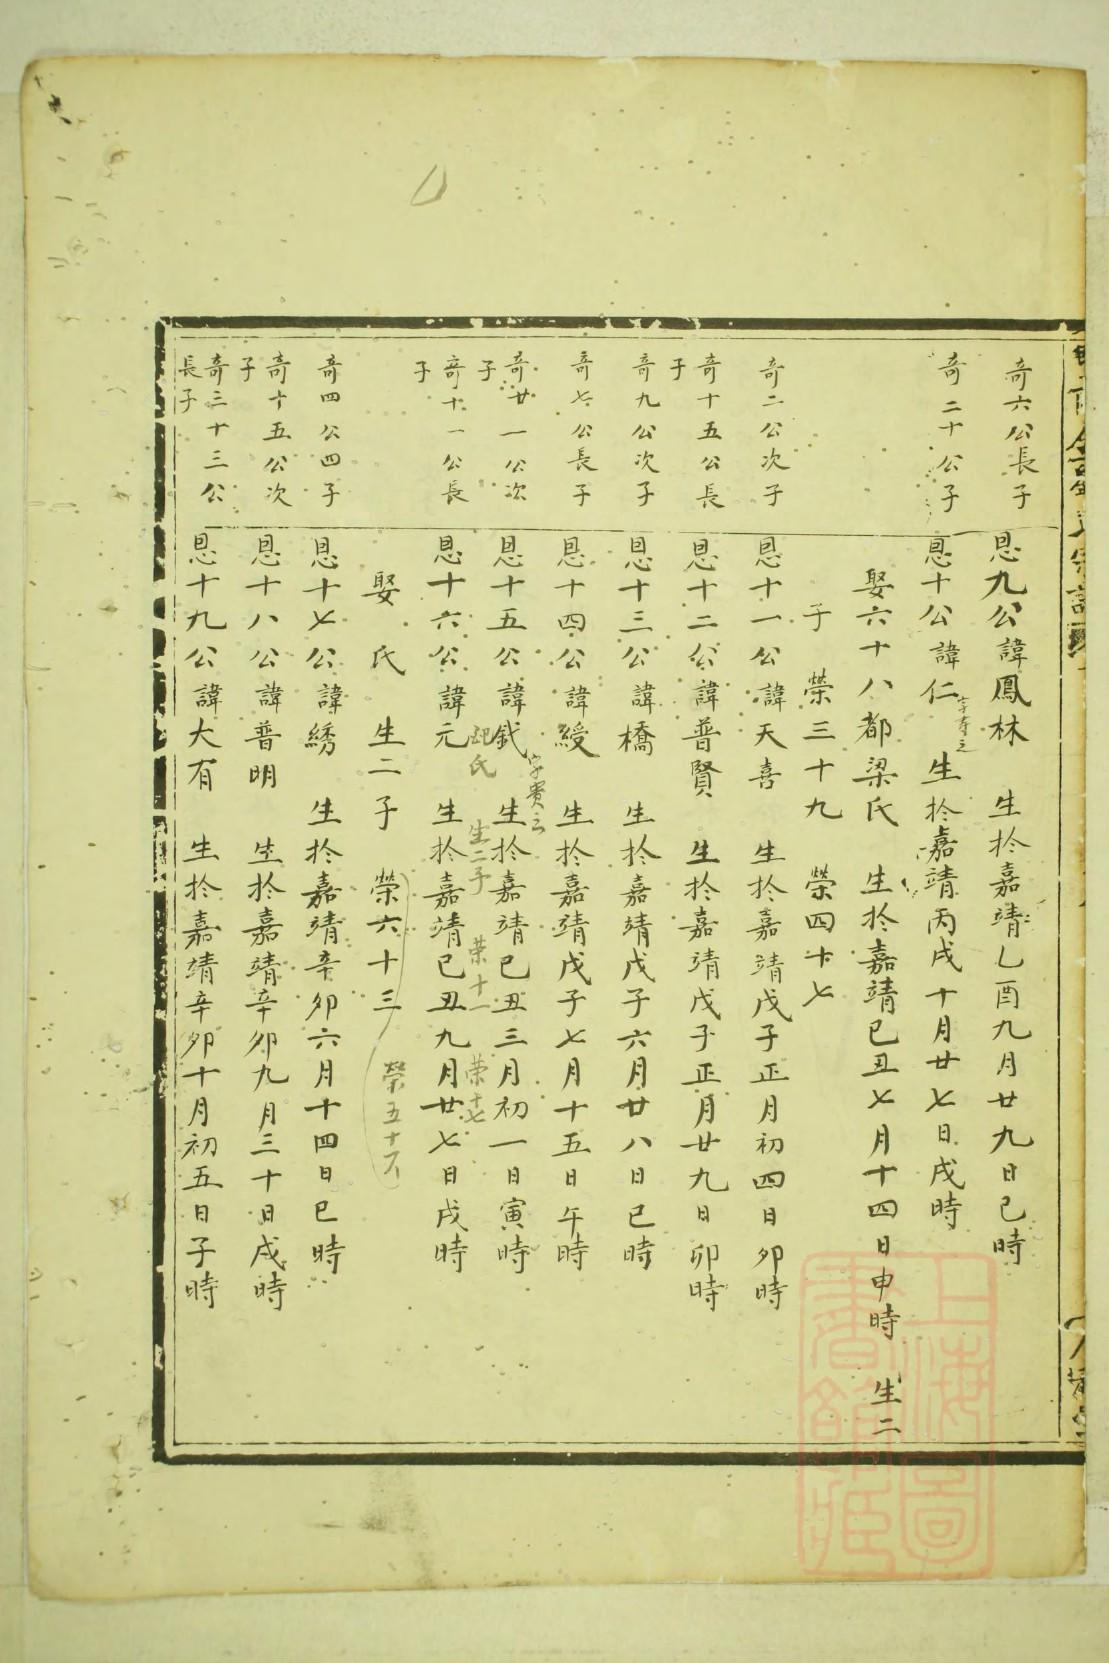 奇六公長子
恩九公諱鳳林　生於嘉靖乙酉九月廿九日巳時
奇二十公子
恩十公諱仁　生於嘉靖丙戌十月廿七日戌時
娶六十八都梁氏　生於嘉靖巳丑七月十四日申時　生二
子　榮三十九　榮四十七
奇二公次子
恩十一公諱天喜　生於嘉靖戊子正月初四日卯時
奇十五公長子
恩十二公諱普賢　生於嘉靖戊子正月廿九日卯時
奇九公次子
恩十三公諱橋　生於嘉靖戊子六月廿八日巳時
奇七公長子
恩十四公諱綬　生於嘉靖戊子七月十五日午時
奇廿一公次子
字賓云
恩十五公諱鉞　生於嘉靖巳丑三月初一日寅時
氏　生二子　榮十一　榮十七
奇十一公長子
恩十六公諱元　生於嘉靖巳丑九月廿七日戌時
娶　氏　生二子　榮六十三　榮五十六
奇四公四子
恩十七公諱綉　生於嘉靖辛卯六月十四日巳時
奇十五公次子
恩十八公諱普明　生於嘉靖辛卯九月三十日戌時
奇三十三公長子
恩十九公諱大有　生於嘉靖辛卯十月初五日子時
上海圖書館藏